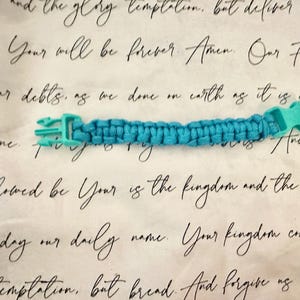 and the glory temptation, but deliver
Your will be forever Amen. Our F
r debts, as we done on earth as it is
owed be Your is the kingdom and the
day our daily name. Your kingdom co
emptation, but bread. And forgive us